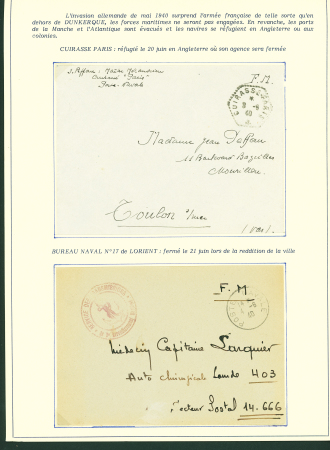 L'invasion allemande de mai 1940 surprend l'armée française de telle sorte qu'en
dehors de DUNKERQUE, les forces maritimes ne seront pas engagées. En revanche, les ports
de la Manche et l'Atlantique sont évacués et les navires se réfugient en Angleterre ou aux
colonies.
CUIRASSE PARIS : réfugié le 20 juin en Angleterre où son agence sera fermée
F.M.
CUIRASSE PARIS
40
Madame Jean
11 Boulevard
Mourillon
Toulon s/mer
(Var)
BUREAU NAVAL N°17 de LORIENT : fermé le 21 juin lors de la reddition de la ville
F.M
POSTE
Médecin Capitaine
Auto chirurgicale Lourde 403
Secteur Postal 14.666